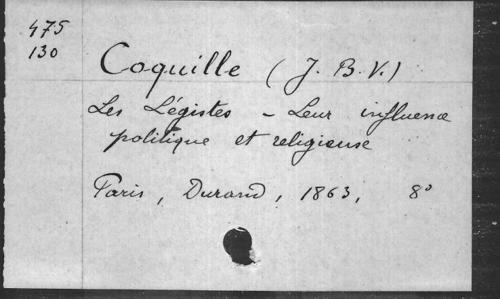 475
130
Coquille (J. B. V.)
Les Légistes - Leur influence
politique et religieuse
Paris, Durand, 1863, 8°